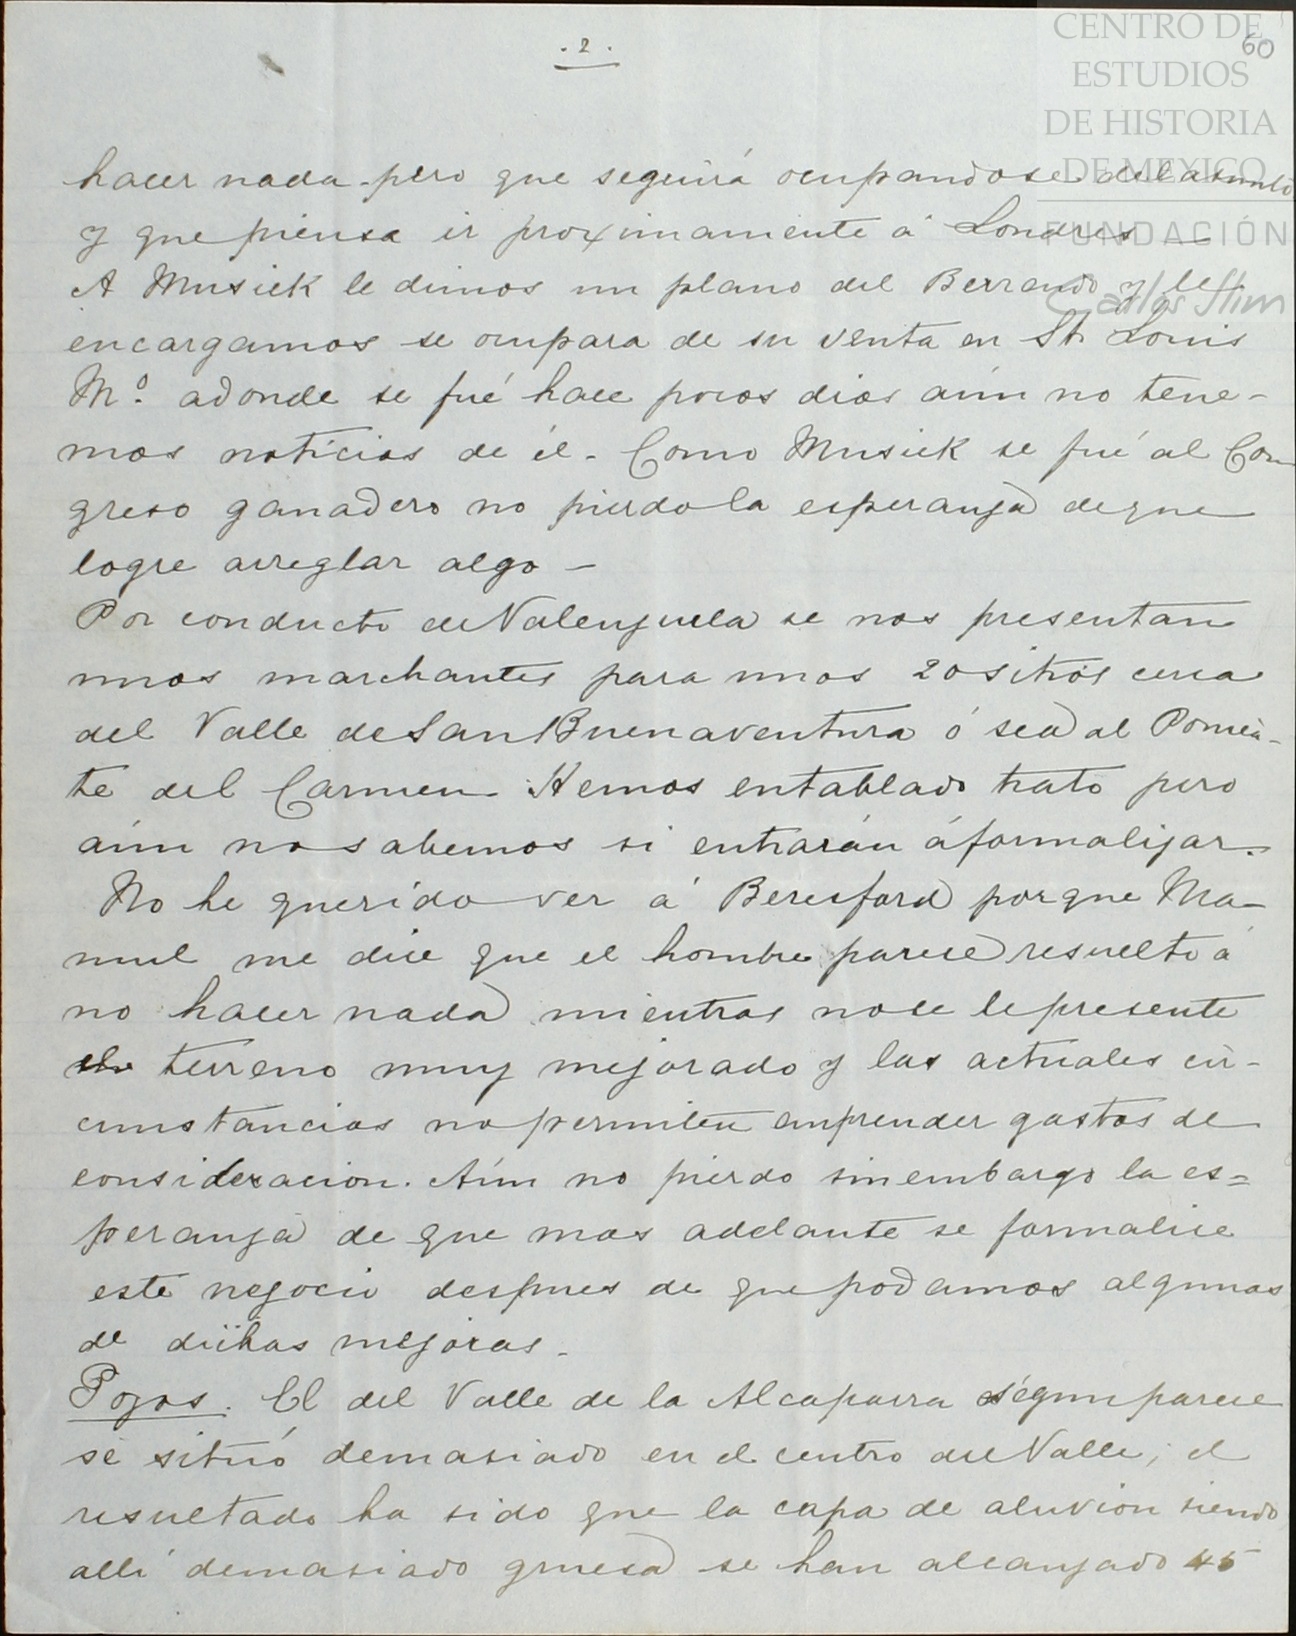 . 2 .
60
CENTRO DE
ESTUDIOS
DE HISTORIA
DE MEXICO
FUNDACIÓN
Carlos Slim
hacer nada pero que seguirá ocupandose del asunto
y que piensa ir proximamente á Londres —
A Musick le dimos un plano del Berrendo y le
encargamos se ocupara de su venta en St. Louis
Mº. adonde se fué hace pocos dias aún no tene-
mos noticias de él. Como Musick se fué al Con
greso ganadero no pierdo la esperanza de que
logre arreglar algo —
Por conducto de Valenzuela se nos presentan
unos marchantes para unos 20 sitios cerca
del Valle de San Buenaventura ó sea al Ponien-
te del Carmen. Hemos entablado trato pero
aún no sabemos si entrarán á formalizar.
No he querido ver á Beresford porque Ma-
nuel me dice que el hombre parece resuelto á
no hacer nada mientras no se le presente
el terreno muy mejorado y las actuales cir-
cunstancias no permiten emprender gastos de
consideracion. Aún no pierdo sin embargo la es=
peranza de que mas adelante se formalice
este negocio despues de que podamos algunas
de dichas mejoras.
Pozos. El del Valle de la Alcaparra segun parece
se situó demasiado en el centro del Valle; el
resultado ha sido que la capa de aluvion siendo
allí demasiado gruesa se han alcanzado 45